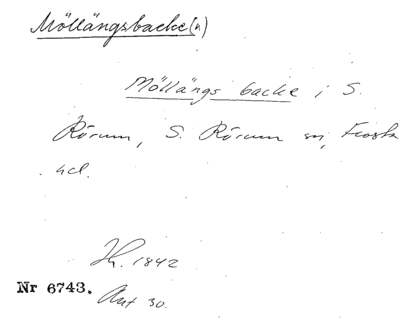 Möllängsbacke(n)
Möllängs backe i S.
Rörum, S. Rörum sn, Frosta
hd.
1842
Nr 6743.
Akt 30.